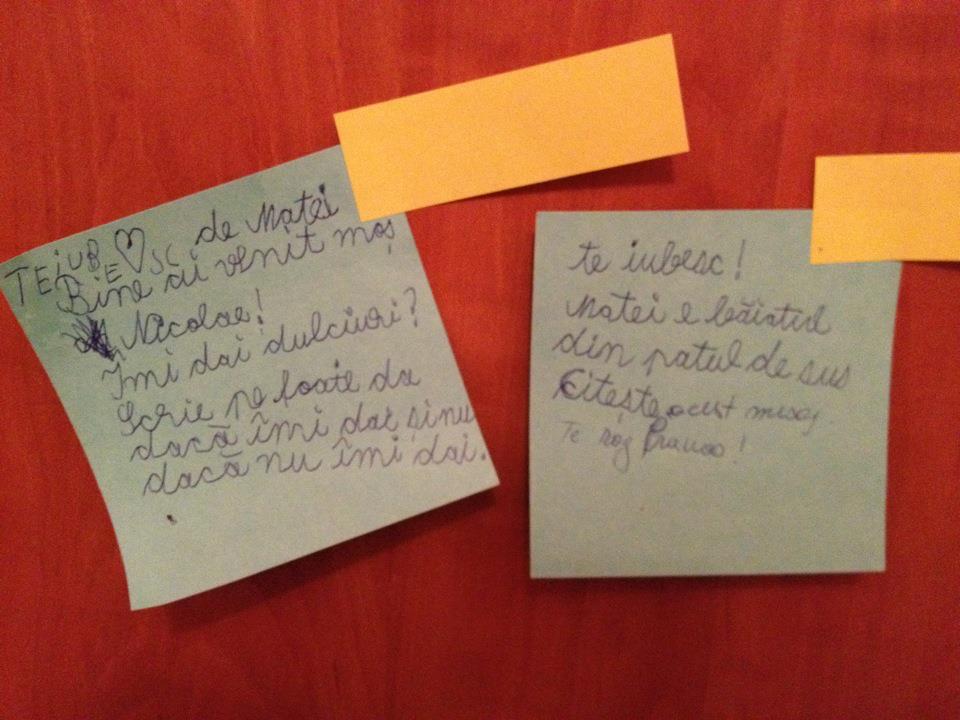 TE iUBE♡SC de Matei
Bine ai venit moș
Nicolae!
Îmi dai dulciuri?
Scrie pe foaie da
dacă îmi dai și nu
dacă nu îmi dai.
te iubesc!
Matei e băiatul
din patul de sus
Citește acest mesaj.
Te rog !